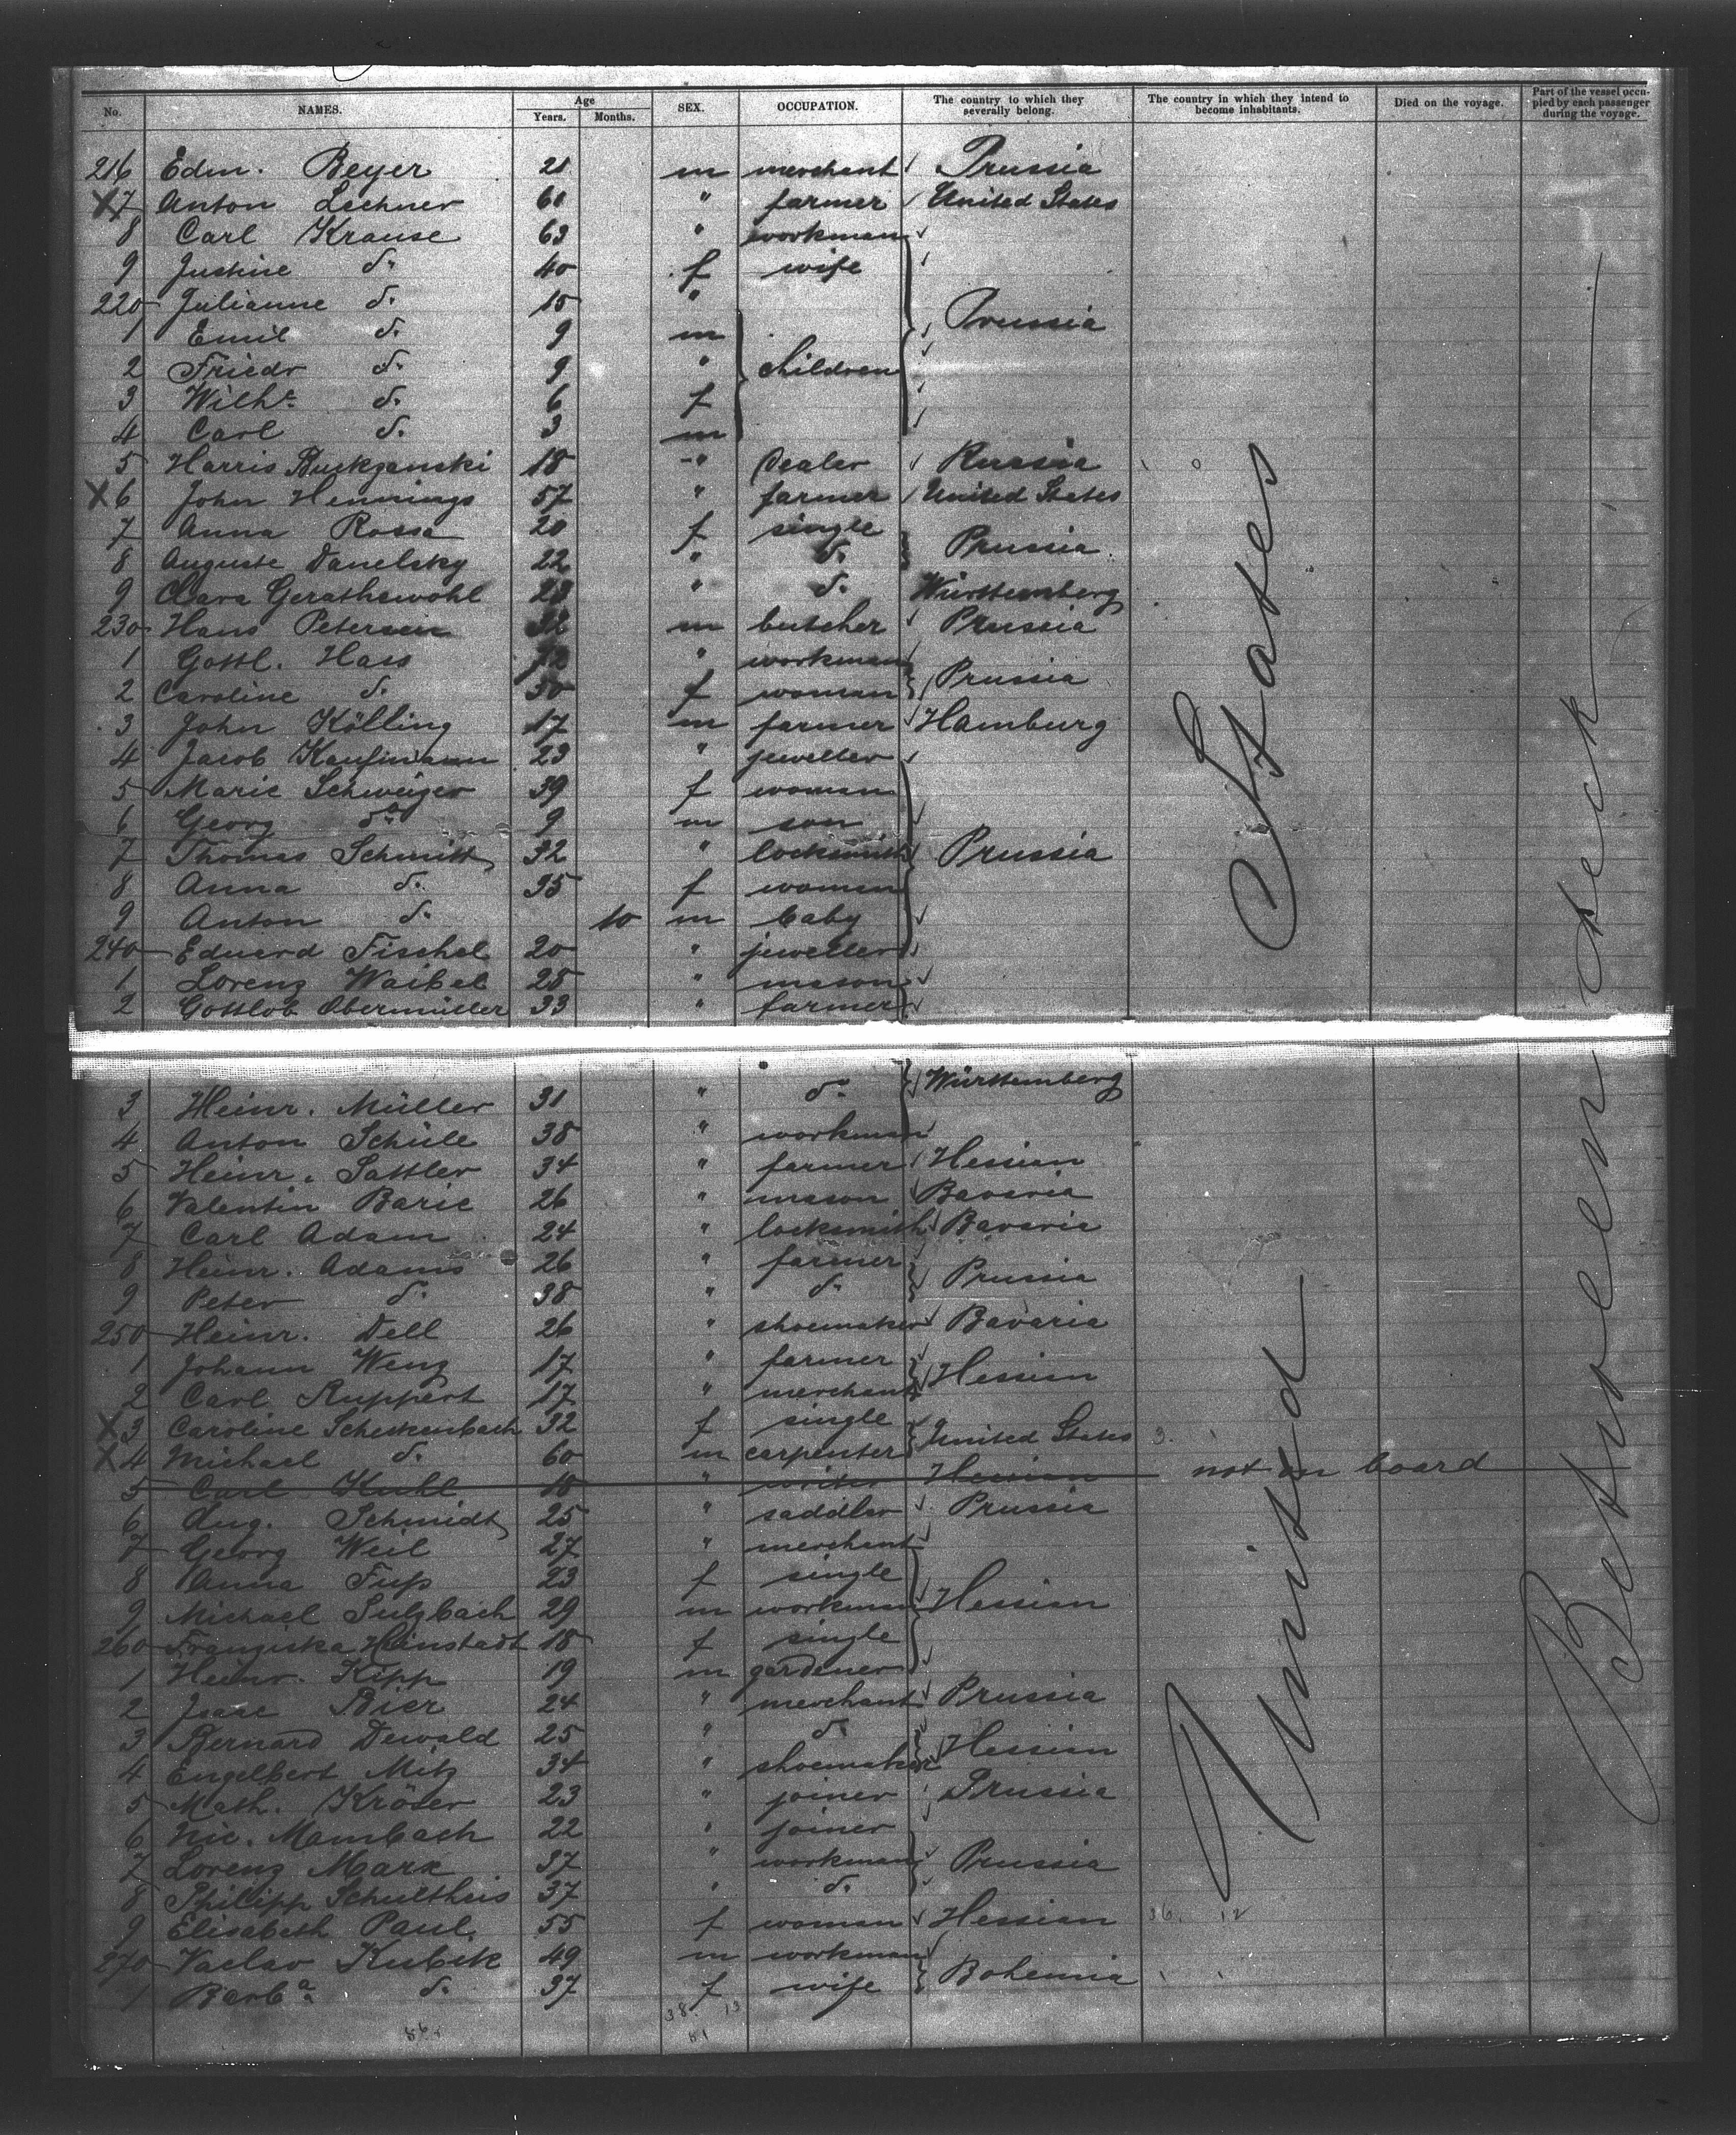 No. NAMES. Age Years. Months. SEX. OCCUPATION. The country to which they severally belong. The country in which they intend to become inhabitants. Died on the voyage. Part of the vessel occupied by each passenger during the voyage.
216 Edm. Beyer 21 m merchant Prussia
X7 Anton Lechner 61 " farmer United States
8 Carl Krause 63 " workman
9 Justine d. 40 f wife
220 Julianne d. 15 "
1 Emil d. 9 m Prussia
2 Friedr d. 9 " children
3 Wilhe. d. 6 f
4 Carl d. 3 m
5 Harris 18 " dealer Russia
X6 John Hennings 57 " farmer United States
7 Anna Rossa 20 f single
8 Auguste Danelsky 22 " d. Prussia
9 Clara Gerathewohl 23 " d. Württemberg
230 Hans Petersen m butcher Prussia
1 Gottl. Hass " workman
2 Caroline d. 30 f woman Prussia
3 John Kölling 17 m farmer Hamburg
4 Jacob Kaufmann 23 " jeweller
5 Marie Schweizer 39 f woman
6 Georg do. 9 m son
7 Thomas Schmitt 32 " locksmith Prussia
8 Anna d. 35 f woman
9 Anton d. 10 m baby
240 Eduard Fischel 20 " jeweller
1 Lorenz Waibel 25 " mason
2 Gottlob Obermüller 33 " farmer
3 Heinr. Müller 31 " d. Württemberg
4 Anton Schüle 38 " workman
5 Heinr. Sattler 34 " farmer Hessian
6 Valentin Barie 26 " mason Bavaria
7 Carl Adam 24 " locksmith Bavaria
8 Heinr. Adams 26 " farmer
9 Peter d. 38 " d. Prussia
250 Heinr. Dell 26 " shoemaker Bavaria
1 Johann Weng 17 " farmer Hessian
2 Carl Ruppert 17 " merchant
X3 Caroline Scheckenbach 32 f single
X4 Michael d. 60 m carpenter United States
5 Carl Kuhl 18 " writer Hessian not on board
6 Aug. Schmidt 25 " saddler Prussia
7 Georg Weil 27 " merchant
8 Anna Fuss 23 f single
9 Michael Sulzbach 29 m workman Hessian
260 Franziska Heinstadt 18 f single
1 Heinr. Kipp 19 m gardener
2 Isaac Bier 24 " merchant Prussia
3 Bernard Dewald 25 " d. Hessian
4 Engelbert Mitz 34 " shoemaker
5 Math. Kröser 23 " joiner Prussia
6 Nic. Mambach 22 " joiner
7 Lorenz Marx 37 " workman Prussia
8 Philipp Schultheis 37 " d.
9 Elisabeth Paul 55 f woman Hessian 36. 12
270 Vaclav Kubek 49 m workman
1 Barba. d. 37 f wife Bohemia
38. 13
86.
51
United States
Betweendeck